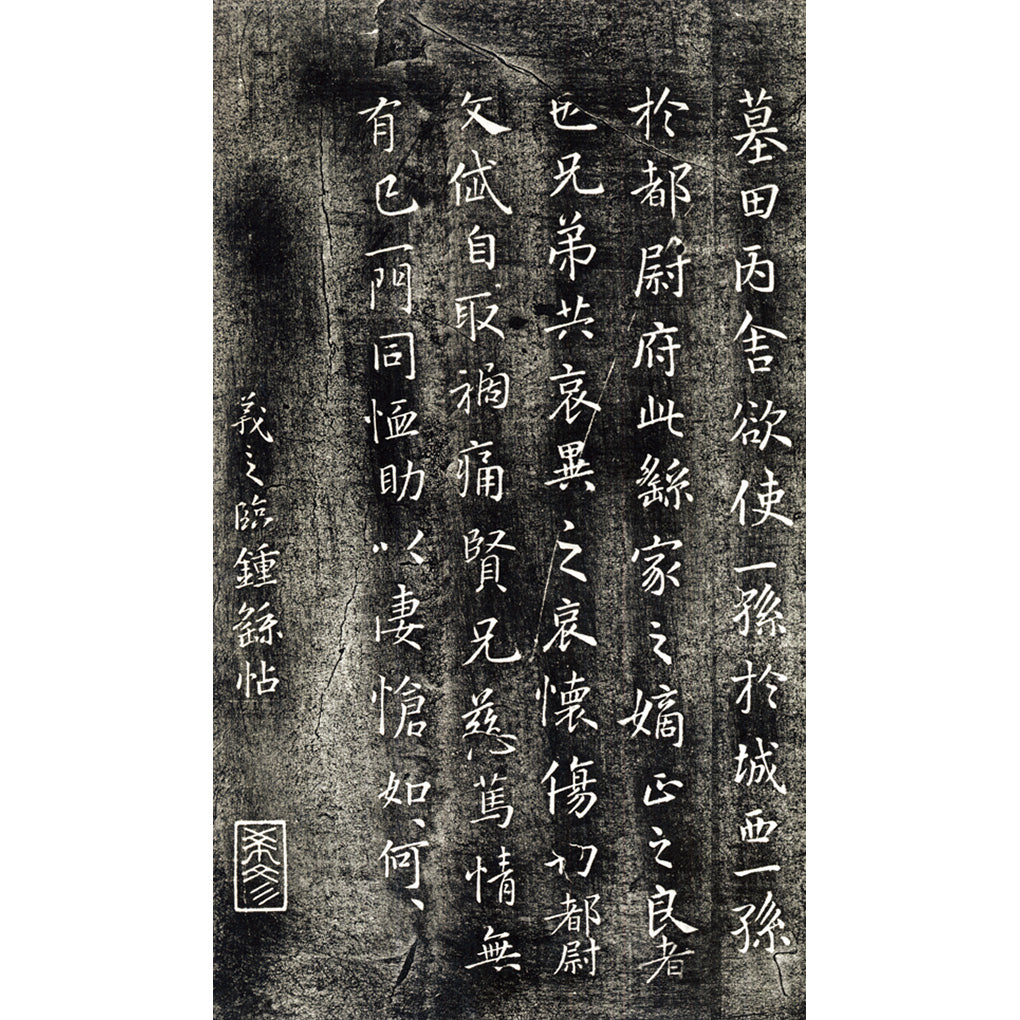 墓田丙舍欲使一孫於城西一孫
於都尉府此繇家之嫡正之良者
也兄弟共哀異之哀懷傷切都尉
文岱自取禍痛賢兄慈篤情無
有已一門同恤助以悽愴如、何、
羲之臨鍾繇帖